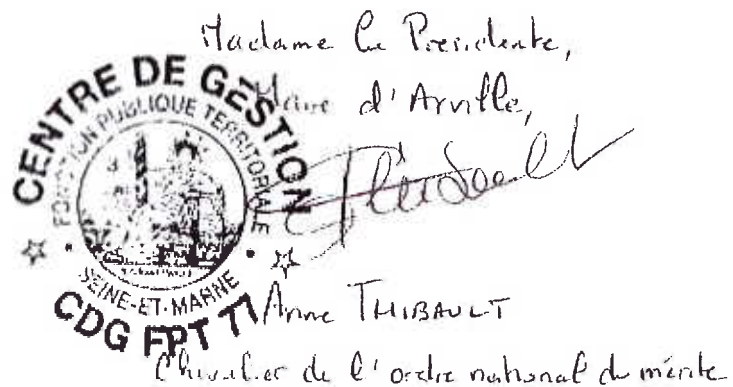 Madame la Présidente,
Maire d'Arville,
CENTRE DE GESTION
FONCTION PUBLIQUE TERRITORIALE
SEINE-ET-MARNE
CDG FPT 77
Anne THIBAULT
Chevalier de l'ordre national du mérite